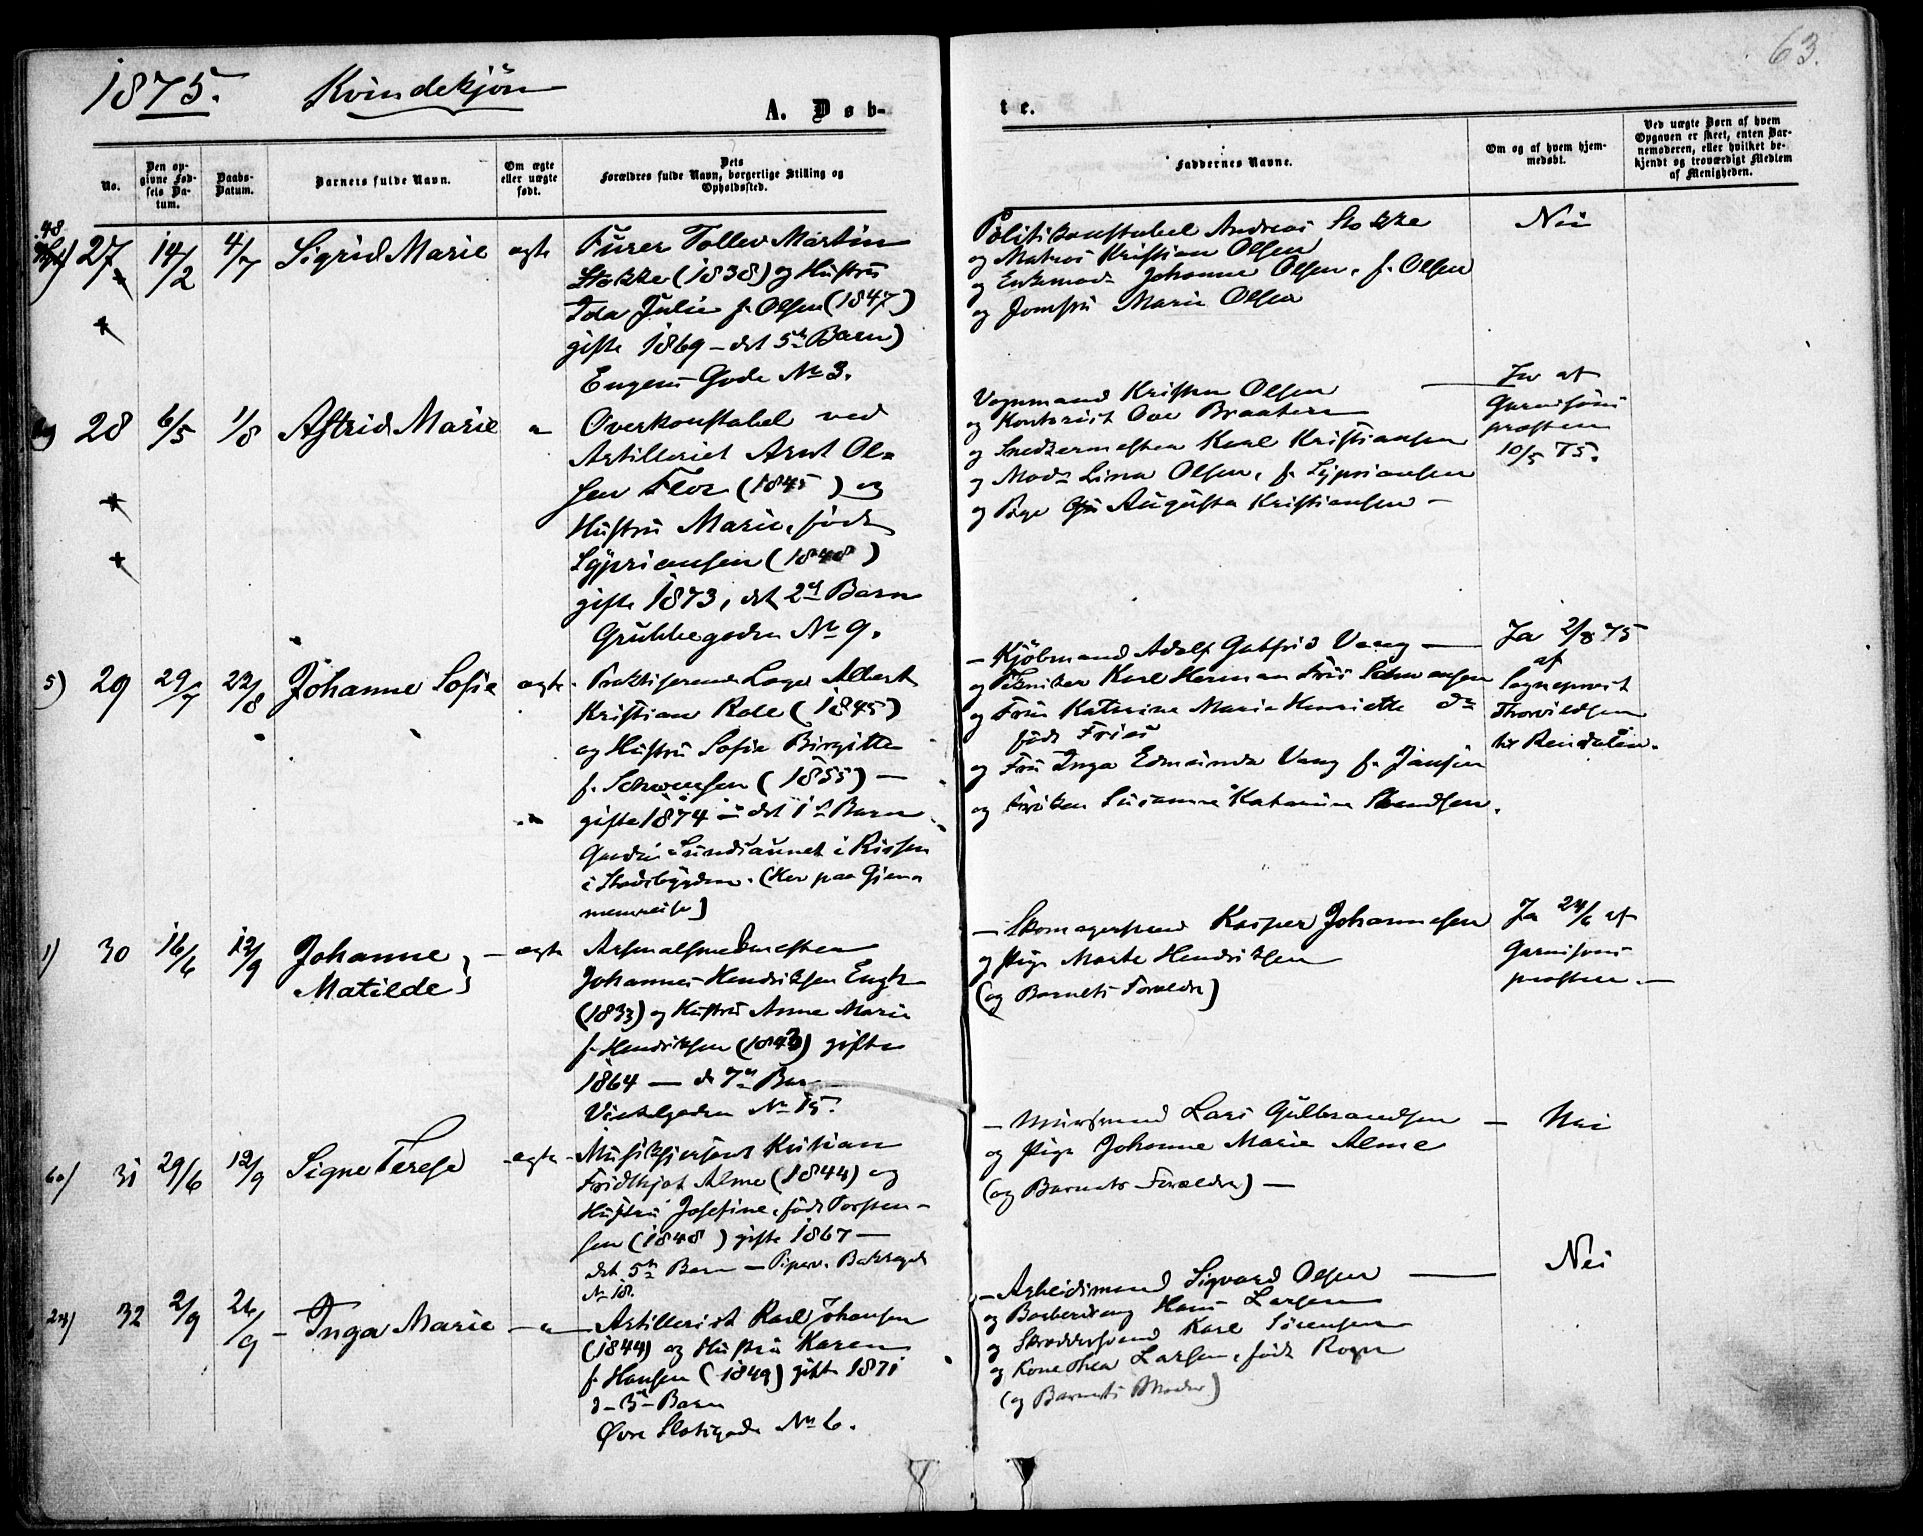 63.
1875. Kvindekjøn
A. Døb-
te.
No.
Den op-
givne Fød-
sels Da-
tum.
Daabs-
Datum.
Barnets fulde Navn.
Om ægte
eller uægte
født.
Dets
Forældres fulde Navn, borgerlige Stilling og
Opholdssted.
Faddernes Navne.
Om og af hvem hjem-
medøbt.
Ved uægte Børn af hvem
Opgaven er skeet, enten Bar-
nemoderen, eller hvilket be-
kjendt og troværdigt Medlem
af Menigheden.
48
27 14/2 4/7 Sigrid Marie ægte
Furer Tollev Martin
Stokke (1838) og Hustru
Ida Julie f. Olsen (1847)
gifte 1869 – det 5te Barn)
Eugens Gade No 3.
Politikonstabel Andreas Stokke
og Matros Kristian Olsen
og Enkemad. Johanne Olsen, f. Olsen
og Jomfru Marie Olsen
Nei
28 6/5 1/8 Astrid Marie "
Overkonstabel ved
Artilleriet Arnt Ol=
sen Flor (1845) og
Hustru Marie, født
Sypriansen (1848)
gifte 1873, det 2et Barn
Grubbegaden No 9.
Vognmand Kristen Olsen
og Kontorist Ove Braaten
og Snedkermester Karl Kristiansen
og Mad. Lina Olsen, f. Sypriansen
og Pige Augusta Kristiansen –
Ja af
Garnisons
præsten
10/5 75.
5) 29 29/7 22/8 Johanne Sofie ægte
Praktiserende Læge Albert
Kristian Roll (1845)
og Hustru Sofie Birgitte
f. Schwensen (1855) –
gifte 1874 – det 1st Barn
Gaden Sundsaunet i Rissen
i Stadsbygden. (Her paa Gjen=
nemreise)
– Kjøbmand Adolf Gotfrid Vang –
og Tekniker Karl Herman Friis Schwensen
og Frue Katrine Marie Henriette do
født Friis
og Fru Inga Edmunda Vang f. Jansen
og Frøken Susanne Katarine Svendsen.
Ja 2/8 75
af
Sogneprest
Thorvildsen
til Rendalen.
1) 30 16/6 12/9 Johanne
Matilde} – ægte
Arsenalsmedmester
Johannes Hendriksen Engh
(1833) og Hustru Anne Marie
f. Hendriksen (1843) gifte
1864 – d 7de Barn
Vinkelgaden No 15.
– Skomagersvend Kasper Johannesen
og Pige Marte Hendriksen
(og Barnets Forældre)
Ja 24/6 af
Garnisons
præsten. –
60) 31 29/6 12/9 Signe Terese ægte
Musiksersjant Kristian
Fridthjof Alme (1844) og
Hustru Josefine, født Torsten-
sen (1848) gifte 1867 –
det 5te Barn – Piperv. Bakkegd
No 18.
– Mursvend Lars Gulbrandsen –
og Pige Johanne Marie Alme
(og Barnets Forældre) –
Nei
32 2/9 26/9 – Inga Marie – " –
Artillerist Karl Johansen
(1844) og Hustru Karen
f. Hansen (1849) gifte 1871
d – 3 – Barn
Øvre Slotsgade No 6.
– Arbeidsmand Sigvard Olsen –
og Barberdreng Hans Larsen
og Skræddersvend Karl Sørensen
og Kone Thea Larsen, født Rogn
(og Barnets Moder)
Nei